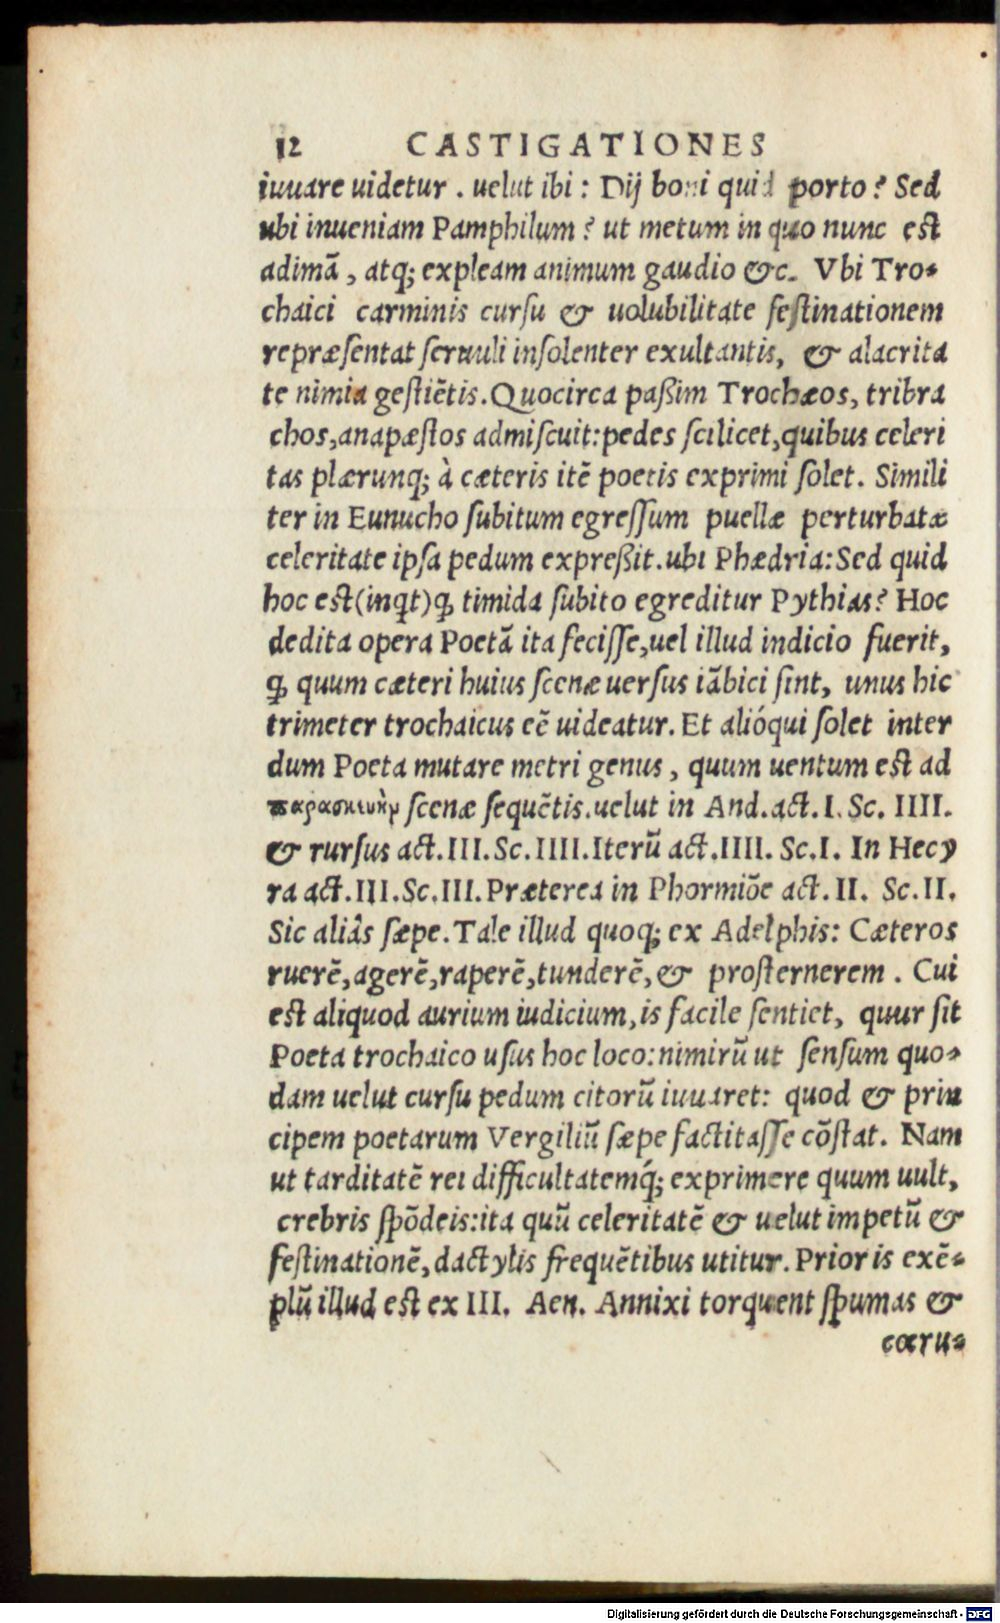 12 CASTIGATIONES
iuuare uidetur . uelut ibi : Dij boni quid porto? Sed
ubi inueniam Pamphilum? ut metum in quo nunc est
adimā, atq; expleam animum gaudio &c. Vbi Tro-
chaici carminis cursu & uolubilitate festinationem
repræsentat seruuli insolenter exultantis, & alacrita
te nimia gestiētis. Quocirca paßim Trochæos, tribra
chos, anapæstos admiscuit: pedes scilicet, quibus celeri
tas plærunq; à cæteris itē poetis exprimi solet. Simili
ter in Eunucho subitum egressum puellæ perturbatæ
celeritate ipsa pedum expreßit. ubi Phædria: Sed quid
hoc est (inqt) ꝙ timida subito egreditur Pythias? Hoc
dedita opera Poetā ita fecisse, uel illud indicio fuerit,
ꝙ quum cæteri huius scenæ uersus iābici sint, unus hic
trimeter trochaicus eē uideatur. Et alióqui solet inter
dum Poeta mutare metri genus, quum uentum est ad
παρασκευὴν scenæ sequētis. uelut in And. act. I. Sc. IIII.
& rursus act. III. Sc. IIII. Iterū act. IIII. Sc. I. In Hecy
ra act. III. Sc. III. Præterea in Phormiōe act. II. Sc. II.
Sic aliâs sæpe. Tale illud quoq; ex Adelphis: Cæteros
ruerē, agerē, raperē, tunderē, & prosternerem . Cui
est aliquod aurium iudicium, is facile sentiet, quur sit
Poeta trochaico usus hoc loco: nimirū ut sensum quo-
dam uelut cursu pedum citorū iuuaret: quod & prin
cipem poetarum Vergiliū sæpe factitasse cōstat. Nam
ut tarditatē rei difficultatemq́; exprimere quum uult,
crebris spōdeis: ita quū celeritatē & uelut impetū &
festinationē, dactylis frequētibus utitur. Prioris exē-
plū illud est ex III. Aen. Annixi torquent spumas &
cœru-
Digitalisierung gefördert durch die Deutsche Forschungsgemeinschaft - DFG